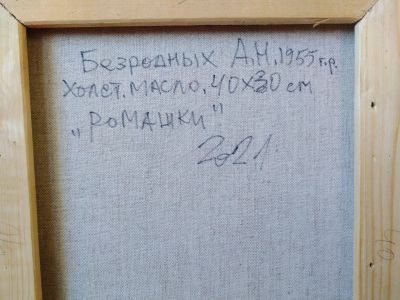 Безродных А.Н. 1955 г.р.
Холст. масло. 40х30 см
„Ромашки"
2021